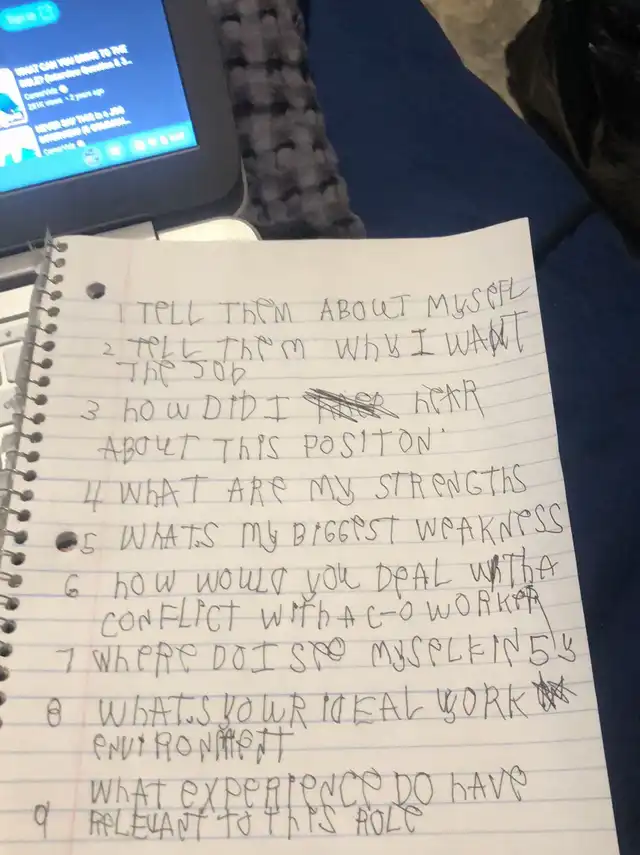 WHAT CAN YOU BRING TO THE
ROLE? (Interview Question & J...
CareerVidz
2 years ago
NEVER SAY THIS in a JOB
1 TELL THEM ABOUT MYSEFL
2 TELL THEM WHY I WANT
THE JOB
3 HOW DID I HEAR
ABOUT THIS POSITON
4 WHAT ARE MY STRENGTHS
5 WHATS MY BIGGEST WEAKNESS
6 HOW WOULD YOU DEAL WITH A
CONFLICT WITH A C-O WORKER
7 WHERE DO I SEE MYSELF IN 5 Y
8 WHAT.S YOUR IDEAL WORK
ENVIRONMENT
WHAT EXPERIENCE DO HAVE
9 RELEVANT TO THIS ROLE